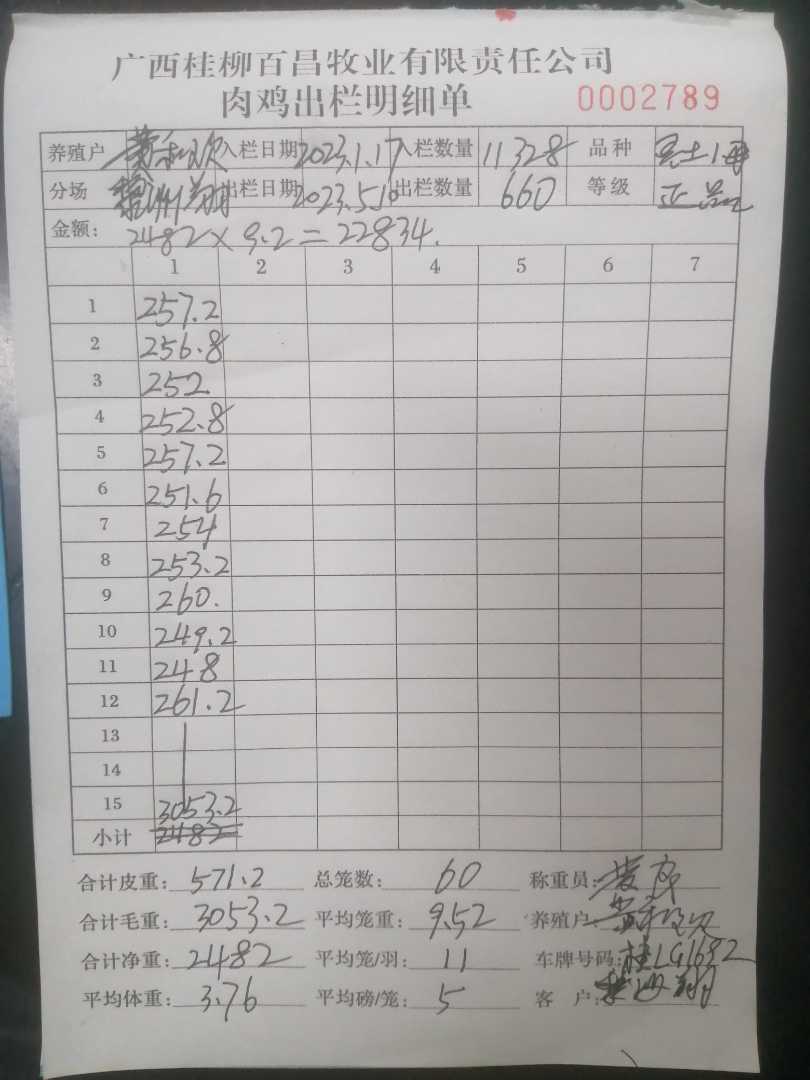 广西桂柳百昌牧业有限责任公司
肉鸡出栏明细单 0002789
养殖户 入栏日期 2023.1.17 入栏数量 11328 品种
分场 出栏日期 2023.5.10 出栏数量 660 等级 正品
金额: 2482×9.2=22834.
1 2 3 4 5 6 7
1 257.2
2 256.8
3 252
4 252.8
5 257.2
6 251.6
7 254
8 253.2
9 260.
10 249.2
11 248
12 261.2
13
14
15 3053.2
小计 2482
合计皮重: 571.2 总笼数: 60 称重员:
合计毛重: 3053.2 平均笼重: 9.52 养殖户:
合计净重: 2482 平均笼/羽: 11 车牌号码: 桂LG1632
平均体重: 3.76 平均磅/笼: 5 客户: